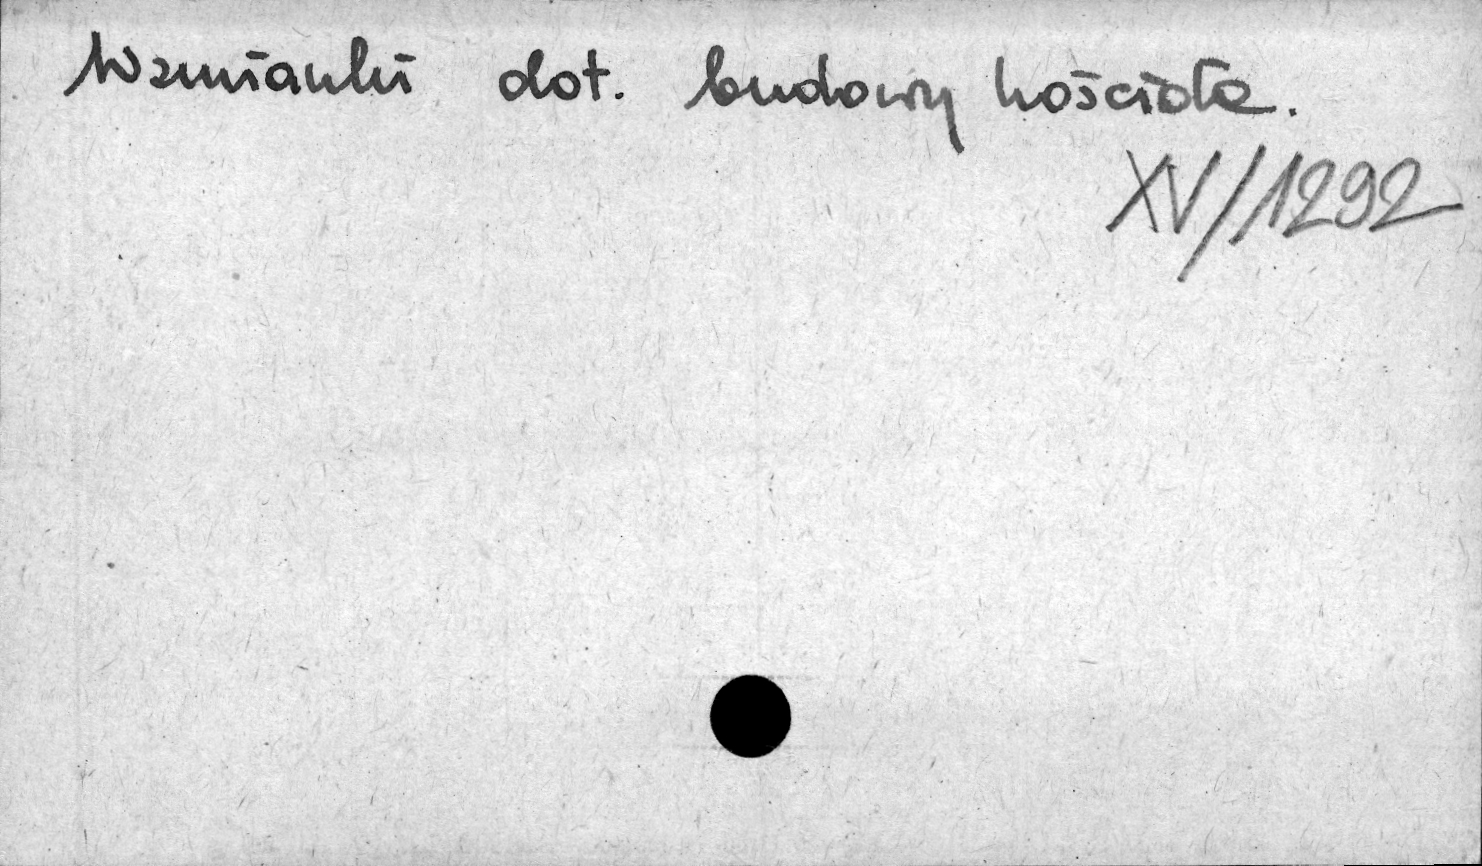 Wzmianki dot. budowy kościoła.
XV/1292